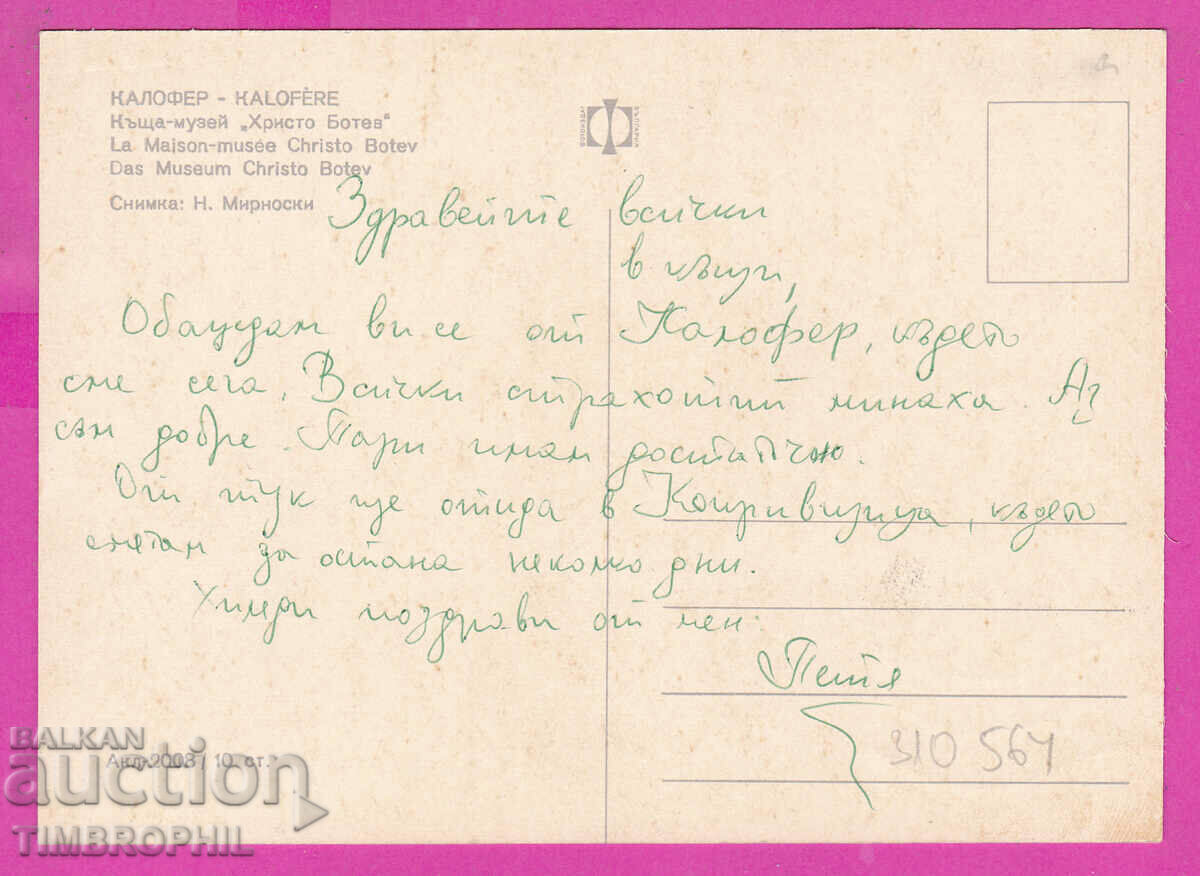 КАЛОФЕР - KALOFÈRE
Къща-музей „Христо Ботев"
La Maison-musée Christo Botev
Das Museum Christo Botev
Снимка: Н. Мирноски
ФОТОИЗДАТ
БЪЛГАРИЯ
Здравейте всички
в къщи,
Обаждам ви се от Калофер, където
сме сега. Всички страхотии минаха. Аз
съм добре. Пари имам достатъчно.
От тук ще отида в Копривщица, където
смятам да остана неколко дни.
Хиляди поздрави от мен.
Петя
310 564
Акл-2003 / 10 ст.
BALKAN
auction
TIMBROPHIL